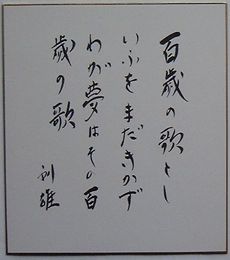 百歳の歌とし
いふをまだきかず
わが夢はその百
歳の歌
利雄